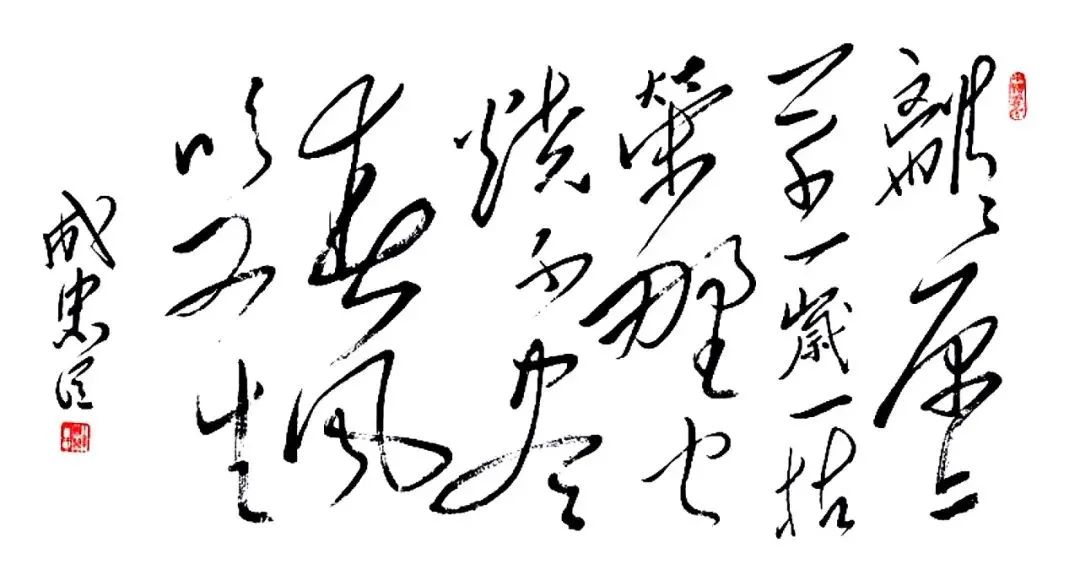 離〻原上
草一歲一枯
榮野火
燒不尽
春風
吹又生
成忠